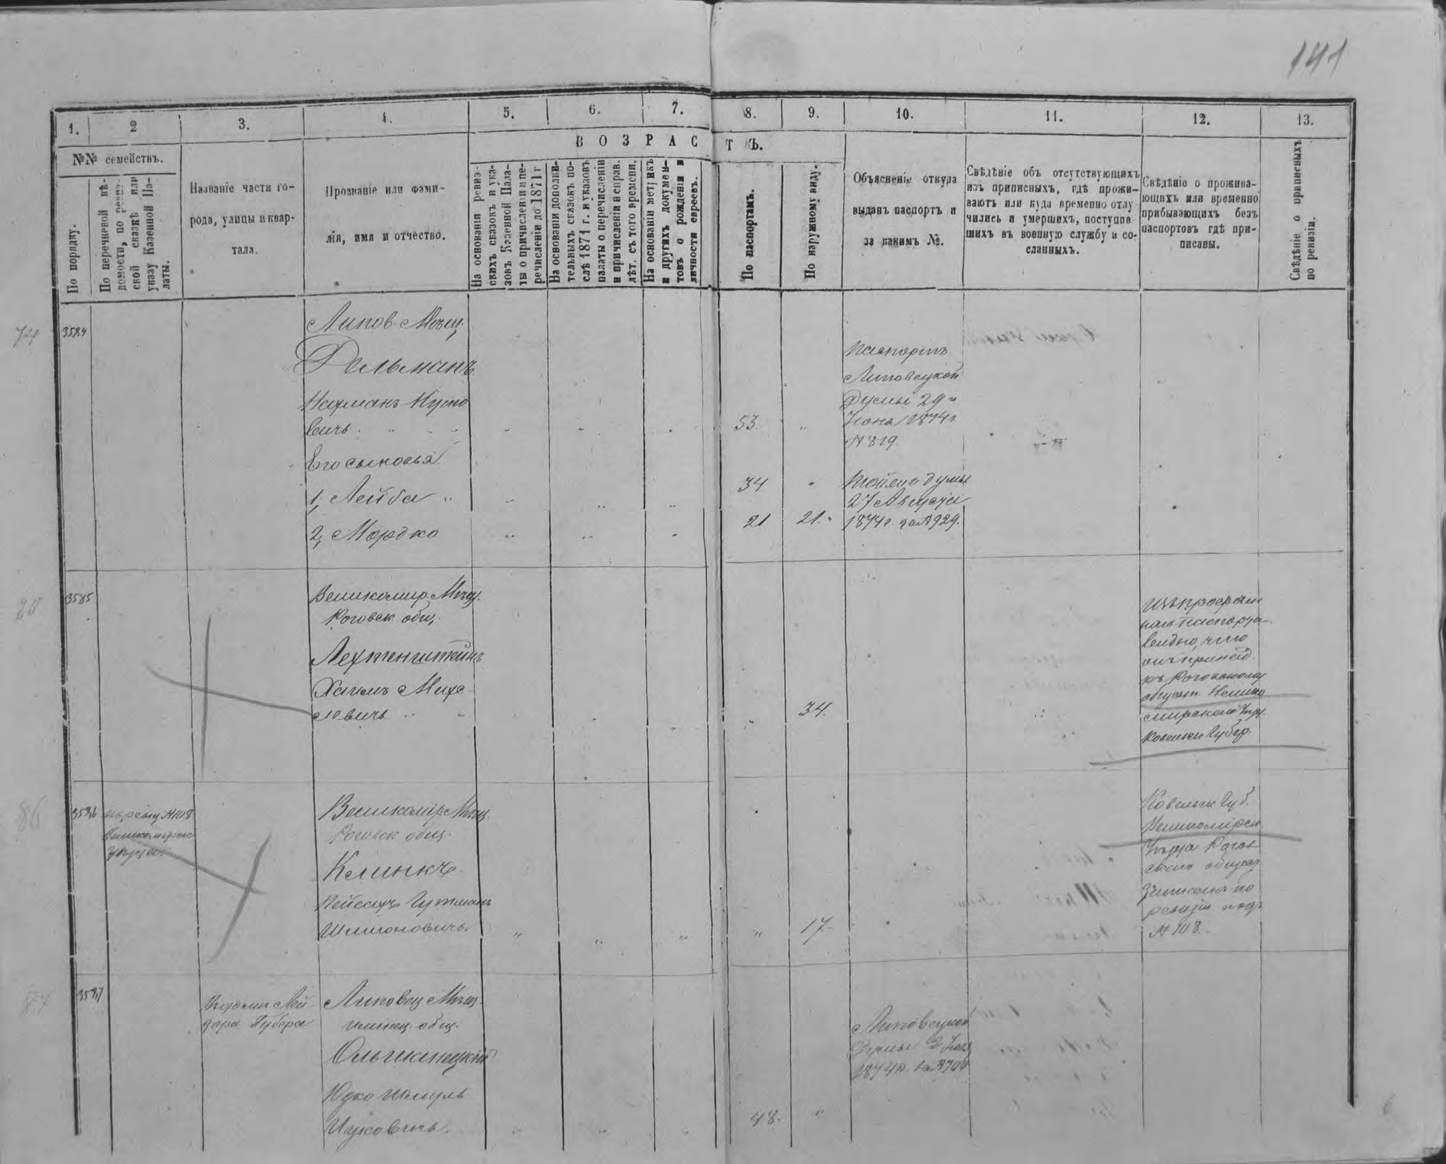 141
1. 2 3. 4. 5. 6. 7. 8. 9. 10. 11. 12. 13.
ВОЗРАСТЪ.
№№ семействъ.
По порядку.
По перечневой вѣ-
домости, по реви-
ской сказкѣ или
указу Казенной Па-
латы.
Названіе части го-
рода, улицы и квар-
тала.
Прозваніе или фами-
лія, имя и отчество.
На основаніи ревиз-
скихъ сказокъ и ука-
зовъ Казенной Пала-
ты о причисленіи и пе-
речисленіи до 1871 г
На основаніи дополни-
тельныхъ сказокъ по-
слѣ 1871 г. и указовъ
палаты о перечисленіи
и причисленіи и справ.
лѣт. съ того времени.
На основаніи метрикъ
и другихъ докумен-
товъ о рожденіи и
личности евреевъ.
По паспортамъ.
По наружному виду.
Объясненіе откуда
выданъ паспортъ и
за какимъ №.
Свѣдѣніе объ отсутствующихъ
изъ приписныхъ, гдѣ прожи-
ваютъ или куда временно отлу
чились и умершихъ, поступив-
шихъ въ военную службу и со-
сланныхъ.
Свѣдѣніе о прожива-
ющихъ или временно
прибывающихъ безъ
паспортовъ гдѣ при-
писаны.
Свѣдѣніе о приписныхъ
по ревизіи.
74 3584
Липов. Мѣщ.
Фельманъ
Нахманъ
вичъ 53
Его сыновья
1, Лейба 34
2, Мордко 21 21
Паспортъ
Липовецкой
Думы 29
1874
№ 819
Тойже думы
27 Августа
1874 г. за № 929.
3585
Великомир. Мѣщ.
Роговск. общ.
Лехтенштейнъ
Хаимъ Михе-
левичъ 34.
видно, что
онъ принад.
къ Роговскому
общест. Велико
мирскаго
Ковенск. Губер.
86 3586
Великомір. Мѣщ.
Роговск. общ.
Клинкъ
Пейсахъ Гутманъ
Шимоновичъ. 17.
Ковенск. Губ.
Великомірск
Уѣзда Рогов-
скаго общес.
Записанъ по
ревизіи подъ
№ 108.
87 3587
Липовец. Мѣщ.
общ.
Ольшанецкій
Юдко Шмуль
Ицковичъ. 48.
Липовецкой
Думы
1874 г. за № 700